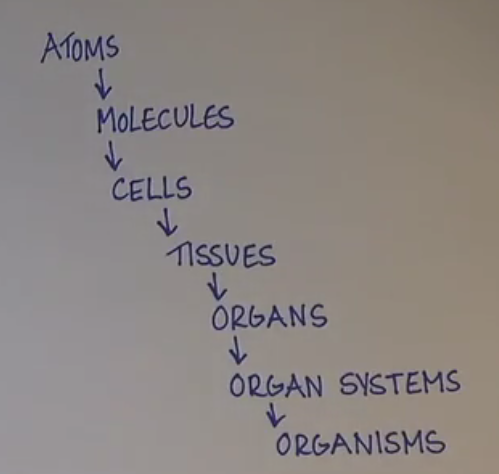 ATOMS
MOLECULES
CELLS
TISSUES
ORGANS
ORGAN SYSTEMS
ORGANISMS